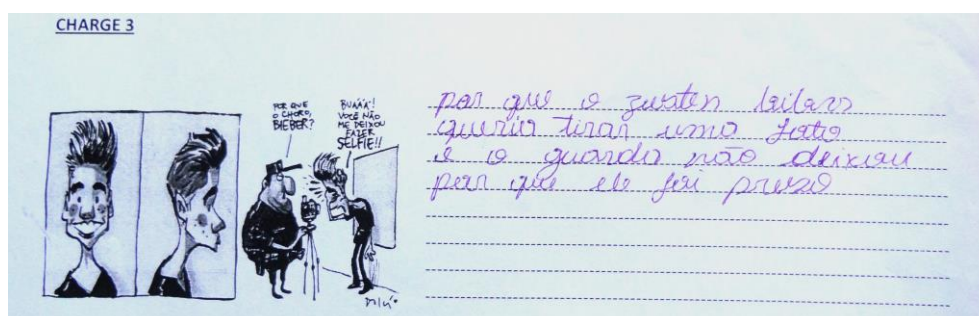 CHARGE 3
POR QUE
O CHORO,
BIEBER?
BUÁÁÁ!
VOCÊ NÃO
ME DEIXOU
FAZER
SELFIE!!
por que o zusten
queria tirar uma foto
é o guarda não deixou
por que ele foi preso